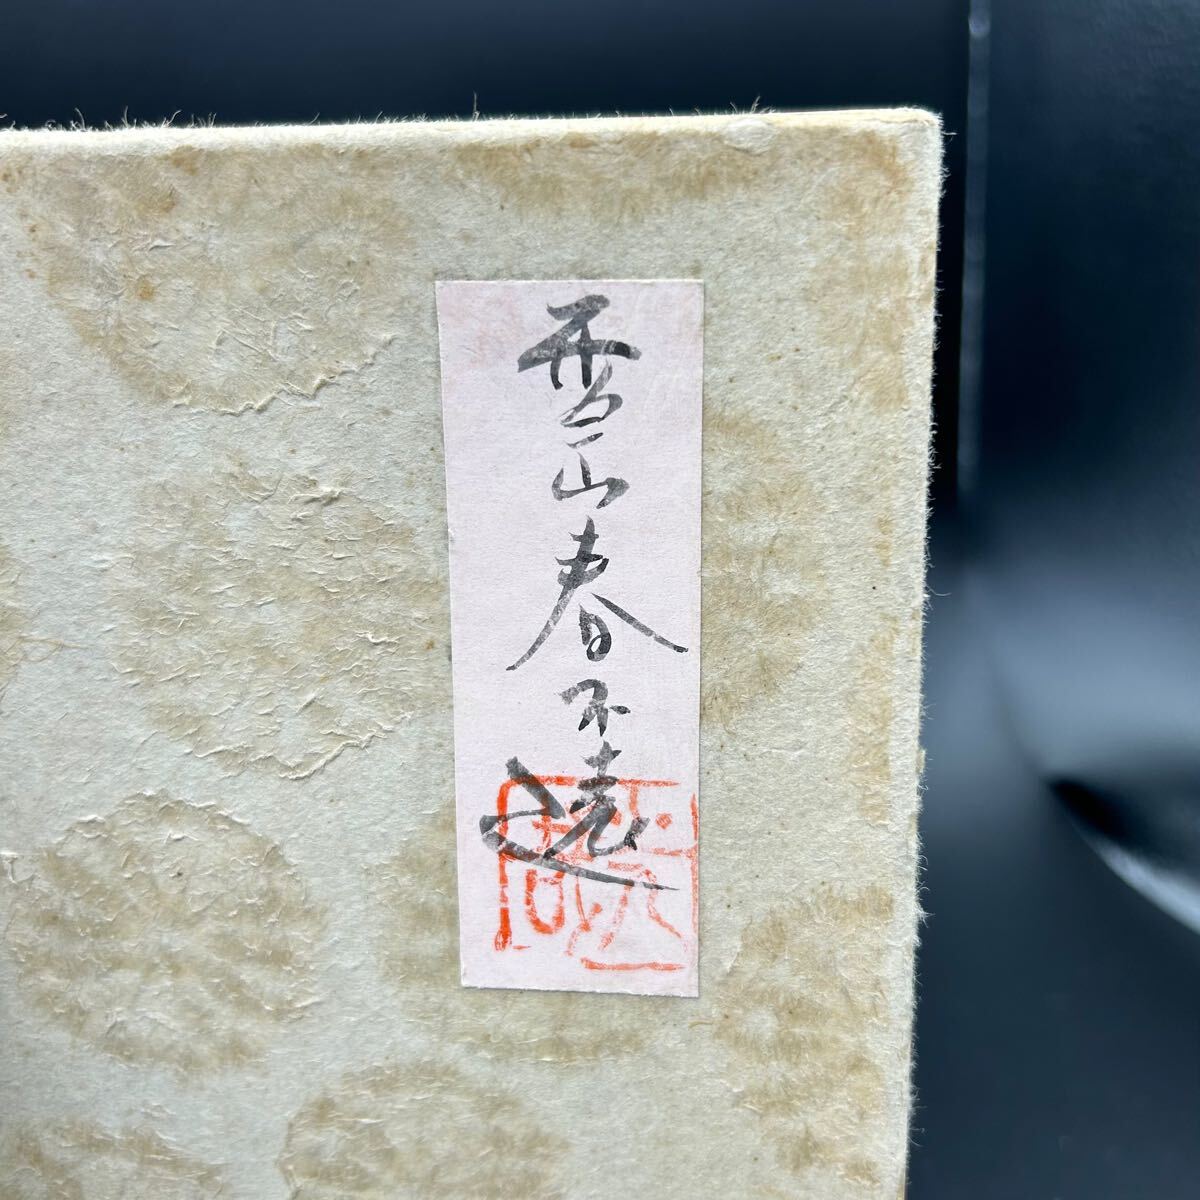 雪山春不遠